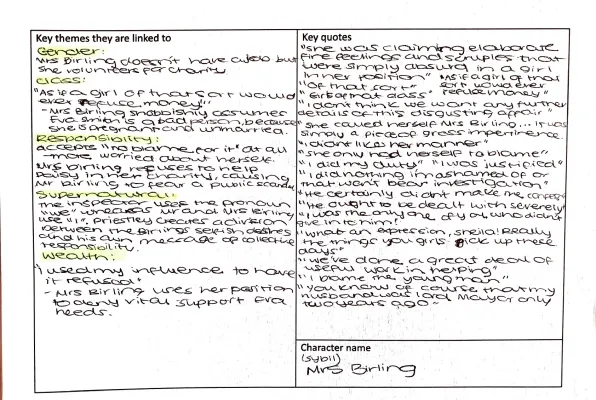 Key themes they are linked to
Gender:
Mrs Birling doesn't have a job but
she volunteers for charity
Class:
"As if a girl of that sort would
ever refuse money"
- Mrs Birling snobbishly assumes
Eva Smith is a bad person, because
she is pregnant and unmarried.
Responsibility:
accepts "no blame for it" at all
- more worried about herself.
Mrs Birling refuses to help
Daisy in her charity, causing
Mr Birling to fear a public scandal
Supernatural:
The Inspector uses the pronoun
"we" whereas Mr and Mrs Birling
use "I", Priestley creates division
between the Birlings selfish desires
and his own message of collective
responsibility.
Wealth:
"I used my influence to have
it refused"
- Mrs Birling uses her position
to deny vital support Eva
needs.
Key quotes
"she was claiming elaborate
fine feelings and scruples that
were simply absurd in a girl
in her position"
"As if a girl of that
sort would ever
refuse money"
"of that sort"
"Girls of that class"
"I don't think we want any further
details of this disgusting affair"
"she called herself Mrs Birling... it was
simply a piece of gross impertinence
"I didn't like her manner"
"she only had herself to blame"
"I did my duty" "I was justified"
"I did nothing I'm ashamed of or
that won't bear investigation"
"He certainly didn't make me confess
"He ought to be dealt with severely"
"I was the only one of you who didn't
give in to him!"
"What an expression, Sheila! Really
the things you girls pick up these
days"
"we've done a great deal of
useful work in helping"
"I blame the young man"
"You know of course that my
husband was Lord Mayor only
two years ago -
Character name
(Sybil)
Mrs Birling